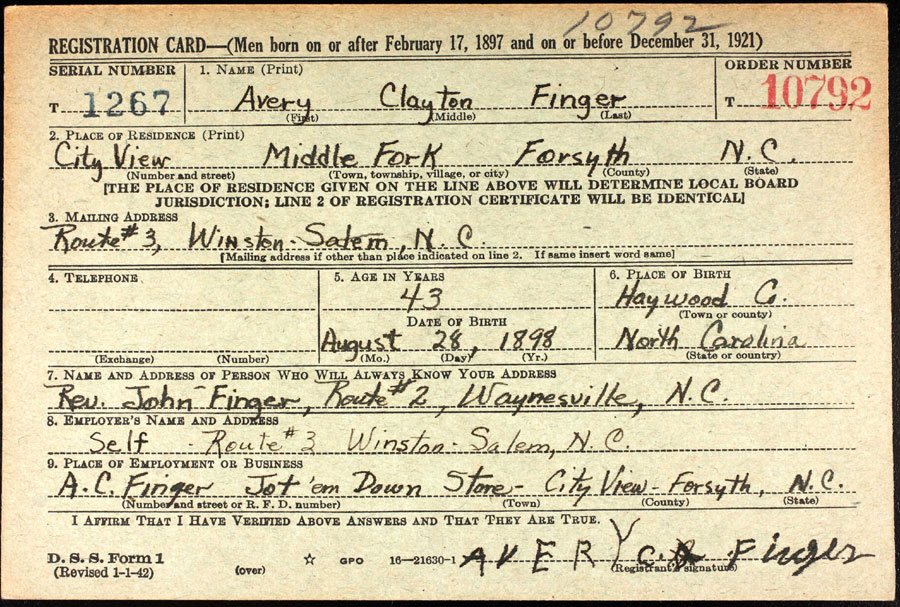 10792
REGISTRATION CARD—(Men born on or after February 17, 1897 and on or before December 31, 1921)
SERIAL NUMBER
T 1267
1. NAME (Print)
Avery Clayton Finger
(First) (Middle) (Last)
ORDER NUMBER
T 10792
2. PLACE OF RESIDENCE (Print)
City View Middle Fork Forsyth N.C.
(Number and street) (Town, township, village, or city) (County) (State)
[THE PLACE OF RESIDENCE GIVEN ON THE LINE ABOVE WILL DETERMINE LOCAL BOARD
JURISDICTION; LINE 2 OF REGISTRATION CERTIFICATE WILL BE IDENTICAL]
3. MAILING ADDRESS
Route # 3, Winston-Salem, N.C.
[Mailing address if other than place indicated on line 2. If same insert word same]
4. TELEPHONE
(Exchange) (Number)
5. AGE IN YEARS
43
DATE OF BIRTH
August 28, 1898
(Mo.) (Day) (Yr.)
6. PLACE OF BIRTH
Haywood Co.
(Town or county)
North Carolina
(State or country)
7. NAME AND ADDRESS OF PERSON WHO WILL ALWAYS KNOW YOUR ADDRESS
Rev. John Finger, Route # 2, Waynesville, N.C.
8. EMPLOYER'S NAME AND ADDRESS
Self - Route # 3 Winston-Salem, N.C.
9. PLACE OF EMPLOYMENT OR BUSINESS
A.C. Finger Jot 'em Down Store - City View - Forsyth, N.C.
(Number and street or R. F. D. number) (Town) (County) (State)
I AFFIRM THAT I HAVE VERIFIED ABOVE ANSWERS AND THAT THEY ARE TRUE.
D. S. S. Form 1
(Revised 1-1-42)
(over)
☆ GPO 16—21630-1
AVERY C. Finger
(Registrant's signature)